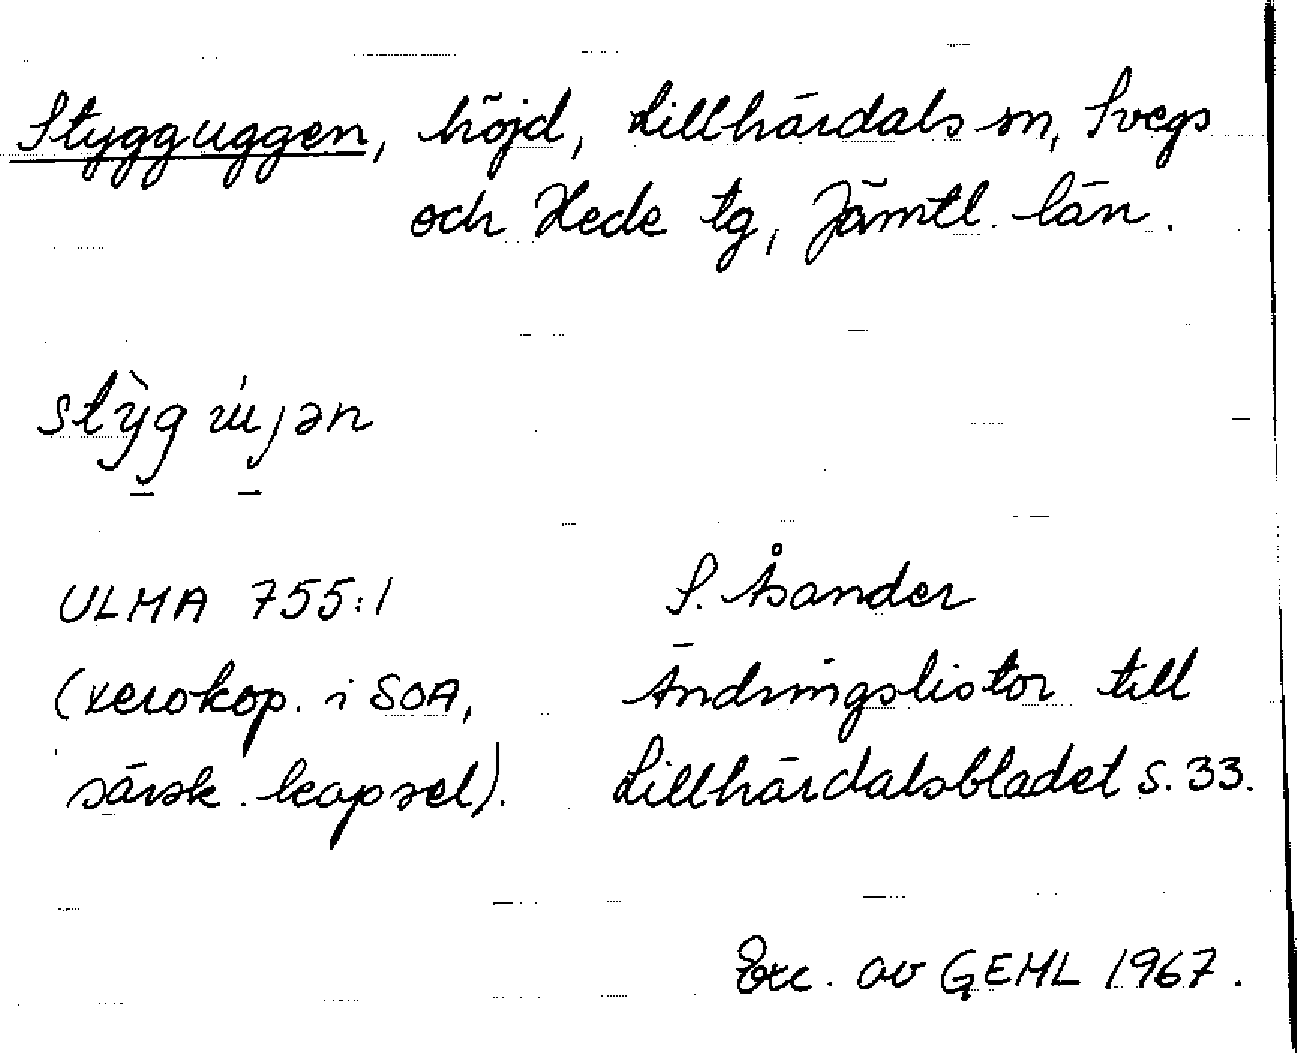 Stygguggen, höjd, Lillhärdals sn, Svegs
och Hede tg, Jämtl. län.
ULMA 755:1
(xerokop. i SOA,
särsk. kapsel).
S. Åsander
Ändringslistor till
Lillhärdalsbladet s. 33.
Exc. av GEHL 1967.